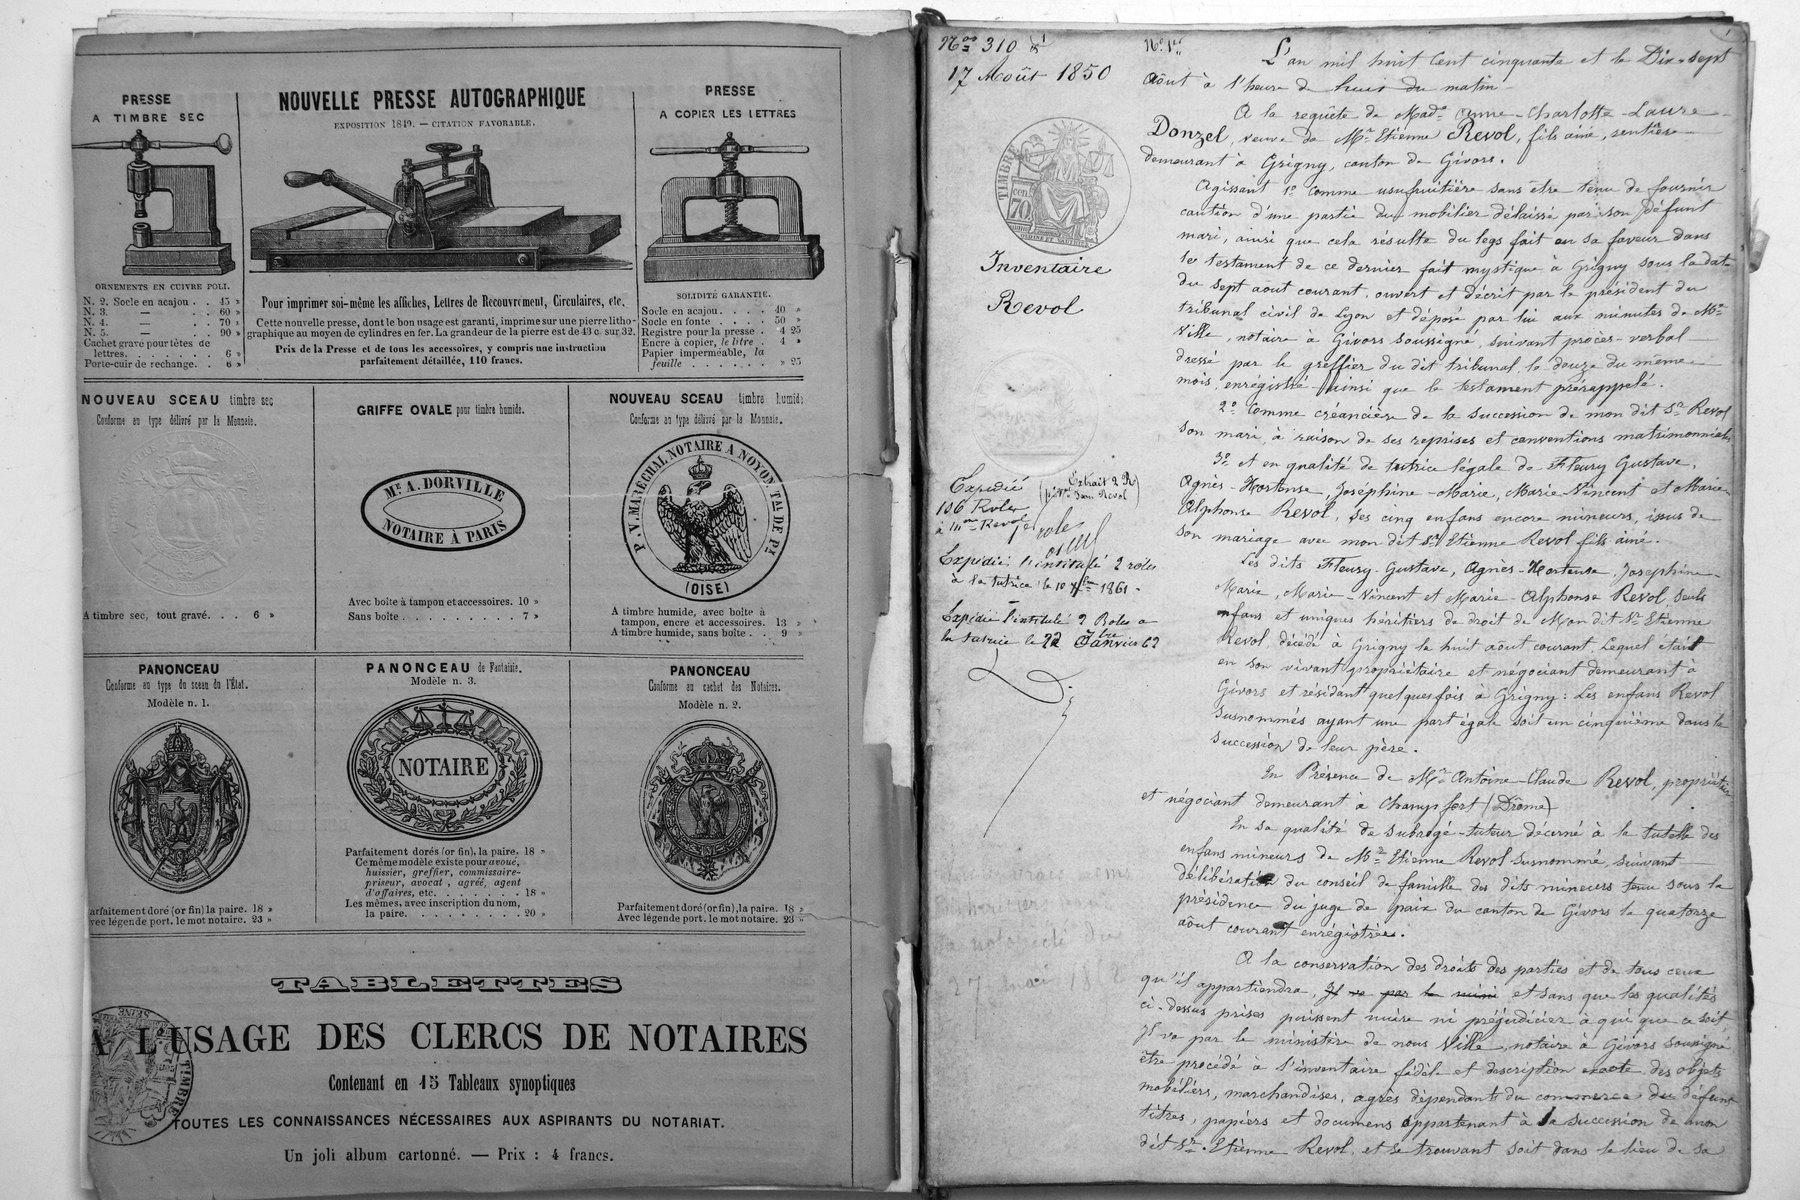 PRESSE
A TIMBRE SEC
ORNEMENTS EN CUIVRE POLI.
N. 2. Socle en acajou . . 45 »
N. 3. — . . 60 »
N. 4. — . . 70 »
N. 5. — . . 90 »
Cachet gravé pour têtes de
lettres. . . . . . . . 6 »
Porte-cuir de rechange. . 6 »
NOUVELLE PRESSE AUTOGRAPHIQUE
EXPOSITION 1849. — CITATION FAVORABLE.
Pour imprimer soi-même les affiches, Lettres de Recouvrement, Circulaires, etc.
Cette nouvelle presse, dont le bon usage est garanti, imprime sur une pierre litho-
graphique au moyen de cylindres en fer. La grandeur de la pierre est de 43 c. sur 32.
Prix de la Presse et de tous les accessoires, y compris une instruction
parfaitement détaillée, 110 francs.
PRESSE
A COPIER LES LETTRES
SOLIDITÉ GARANTIE.
Socle en acajou. . . . . 40 »
Socle en fonte . . . . . 50 »
Registre pour la presse . 4 25
Encre à copier, le litre . 4 »
Papier imperméable, la
feuille . . . . . . . » 25
NOUVEAU SCEAU timbre sec
Conforme au type délivré par la Monnaie.
A timbre sec, tout gravé. . . 6 »
GRIFFE OVALE pour timbre humide.
Me A. DORVILLE
NOTAIRE À PARIS
Avec boîte à tampon et accessoires. 10 »
Sans boîte . . . . . . . . . . 7 »
NOUVEAU SCEAU timbre humide
Conforme au type délivré par la Monnaie.
P. V. MARÉCHAL NOTAIRE A NOYON Tal DE Px
(OISE)
A timbre humide, avec boîte à
tampon, encre et accessoires. 13 »
A timbre humide, sans boîte . . 9 »
PANONCEAU
Conforme au type du sceau de l'État.
Modèle n. 1.
arfaitement doré (or fin) la paire. 18 »
vec légende port. le mot notaire. 23 »
PANONCEAU de Fantaisie.
Modèle n. 3.
NOTAIRE
Parfaitement dorés (or fin), la paire. 18 »
Ce même modèle existe pour avoué,
huissier, greffier, commissaire-
priseur, avocat, agréé, agent
d'affaires, etc. . . . . . . . 18 »
Les mêmes, avec inscription du nom,
la paire. . . . . . . . . . . 20 »
PANONCEAU
Conforme au cachet des Notaires.
Modèle n. 2.
Parfaitement doré (or fin), la paire. 18 »
Avec légende port. le mot notaire. 23 »
TABLETTES
A L'USAGE DES CLERCS DE NOTAIRES
Contenant en 15 Tableaux synoptiques
TOUTES LES CONNAISSANCES NÉCESSAIRES AUX ASPIRANTS DU NOTARIAT.
Un joli album cartonné. — Prix : 4 francs.
TIMBRE
SEINE
Nos 310
17 Août 1850
TIMBRE
70 cen
Inventaire
Revol
Expédié
106 Roles
à Mme Revol
Extrait 2 R
Expédié l'intitulé 2 roles
à la tutrice le 10 Xbre 1861.
Expédié l'intitulé 2 Roles a
la tutrice le 22 Janvier 62
No 1er
L'an mil huit cent cinquante et le Dix-sept
Août à l'heure de huit du matin
A la requête de Made Anne-Charlotte-Laure
Donzel, veuve de Mr Etienne Revol, fils ainé, rentière
demeurant à Grigny, canton de Givors.
Agissant 1o Comme usufruitière sans être tenu de fournir
caution d'une partie du mobilier délaissé par son défunt
mari, ainsi que cela résulte du legs fait en sa faveur dans
le testament de ce dernier fait mystique à Grigny sous la date
du sept août courant, ouvert et décrit par le président du
tribunal civil de Lyon et déposé par lui aux minutes de Me
Ville, notaire à Givors soussigné, suivant procès-verbal
dressé par le greffier du dit tribunal, le douze du même
mois, enregistré ainsi que le testament prérappelé.
2o Comme créancière de la succession de mon dit Sr Revol
son mari, à raison de ses reprises et conventions matrimoniales
3o et en qualité de tutrice légale de Fleury Gustave,
Agnès-Hortense, Joséphine-Marie, Marie-Vincent et Marie-
Alphonse Revol, ses cinq enfans encore mineurs, issus de
son mariage avec mon dit Sr Etienne Revol fils ainé.
Les dits Fleury-Gustave, Agnès-Hortense, Josephine-
Marie, Marie-Vincent et Marie-Alphonse Revol seuls
enfans et uniques héritiers de droit de Mon dit Sr Etienne
Revol, décédé à Grigny le huit août courant, Lequel était
en son vivant propriétaire et négociant demeurant à
Givors et résidant quelquefois à Grigny: Les enfans Revol
susnommés ayant une part égale soit un cinquième dans la
succession de leur père.
En Présence de Mr Antoine-Claude Revol, propriétaire
et négociant demeurant à Champfort (Drôme)
En sa qualité de subrogé-tuteur décerné à la tutelle des
enfans mineurs de Mr Etienne Revol susnommé, suivant
délibération du conseil de famille des dits mineurs tenu sous la
présidence du juge de paix du canton de Givors le quatorze
août courant enregistrée.
A la conservation des droits des parties et de tous ceux
qu'il appartiendra, Il va par le mini et sans que les qualités
ci-dessus prises puissent nuire ni préjudicier à qui que ce soit
Il va par le ministère de nous Ville, notaire à Givors soussigné
être procédé à l'inventaire fidèle et description exacte des objets
mobiliers, marchandises, agrès dépendants du commerce du défunt
titres, papiers et documens appartenant à la succession de mon
dit Sr Etienne Revol, et se trouvant soit dans le lieu de sa